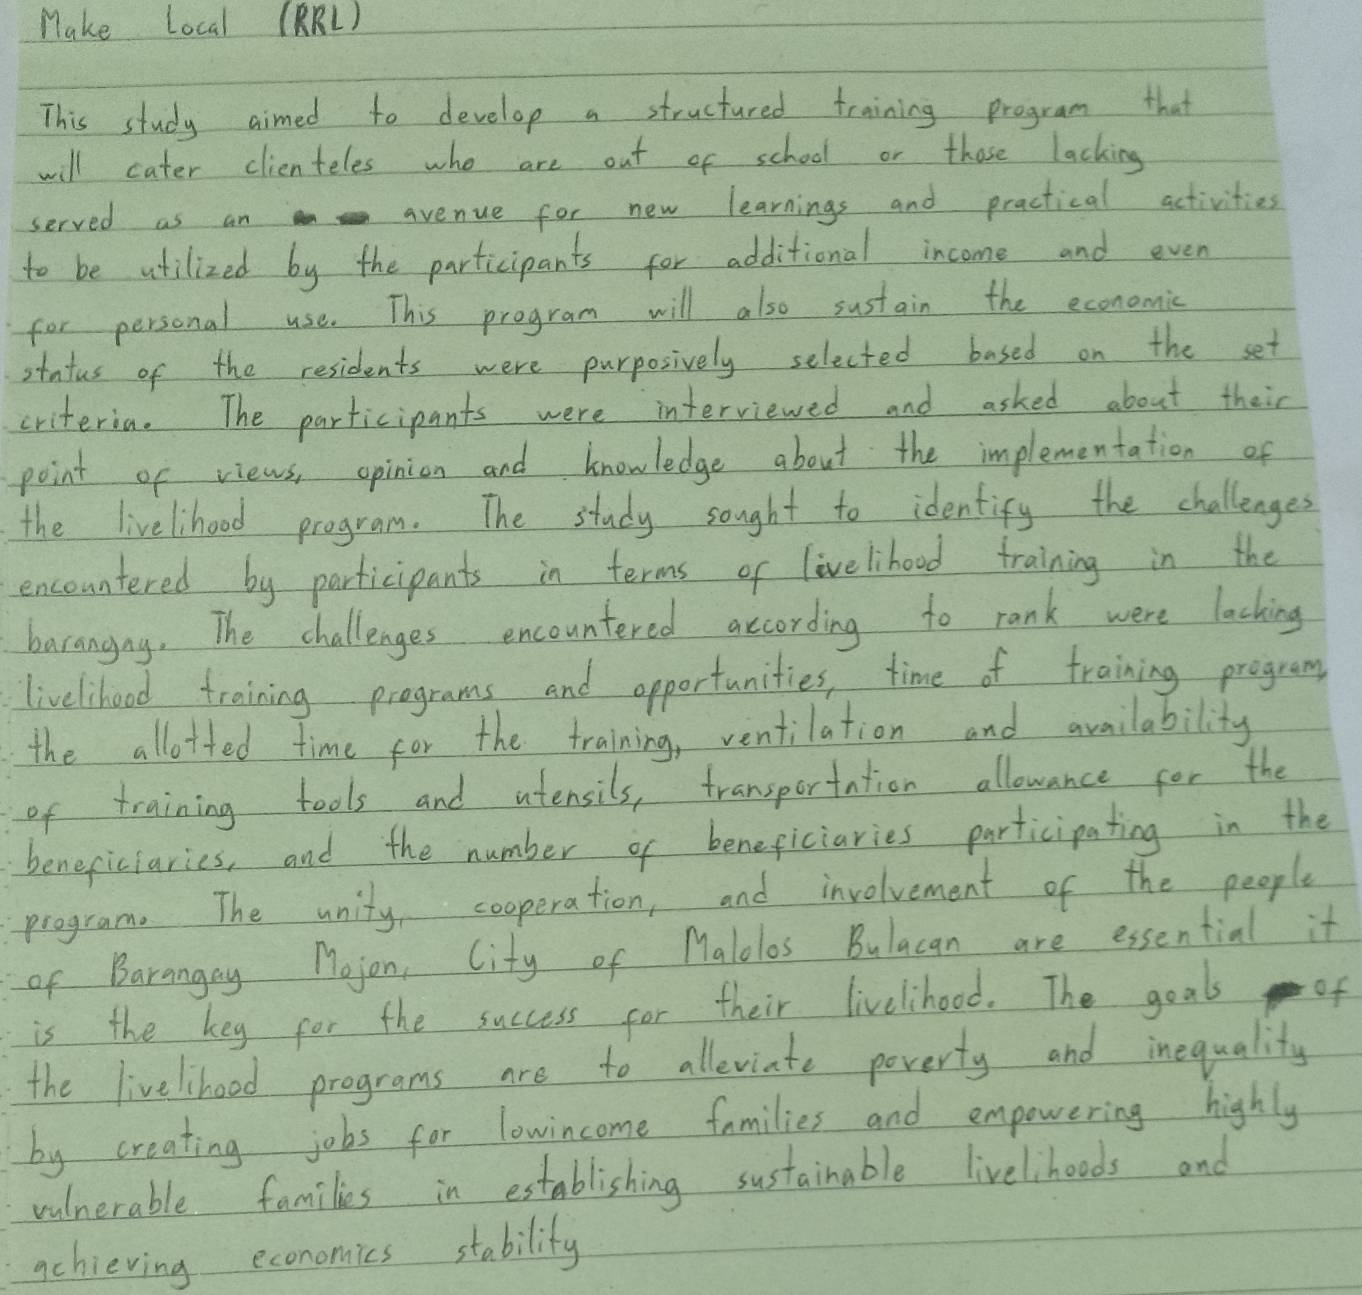 Make Local (RRL)
This study aimed to develop a structured training program that
will cater clienteles who are out of school or those lacking
served as an avenue for new learnings and practical activities
to be utilized by the participants for additional income and even
for personal use. This program will also sustain the economic
status of the residents were purposively selected based on the set
criteria. The participants were interviewed and asked about their
point of views, opinion and knowledge about the implementation of
the livelihood program. The study sought to identify the challenges
encountered by participants in terms of livelihood training in the
barangay. The challenges encountered according to rank were lacking
livelihood training programs and opportunities, time of training program,
the allotted time for the training, ventilation and availability
of training tools and utensils, transportation allowance for the
beneficiaries, and the number of beneficiaries participating in the
program. The unity, cooperation, and involvement of the people
of Barangay Mojon, City of Malolos Bulacan are essential it
is the key for the success for their livelihood. The goals of
the livelihood programs are to alleviate poverty and inequality
by creating jobs for lowincome families and empowering highly
vulnerable families in establishing sustainable livelihoods and
achieving economics stability